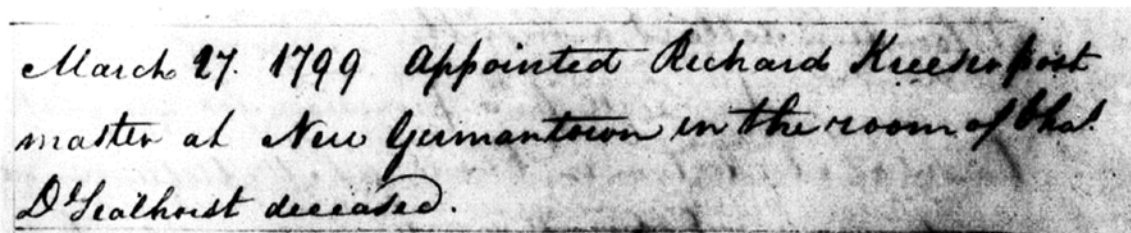 March 27. 1799 Appointed Richard Kreesen post
master at New Germantown in the room of Chas.
deceased.